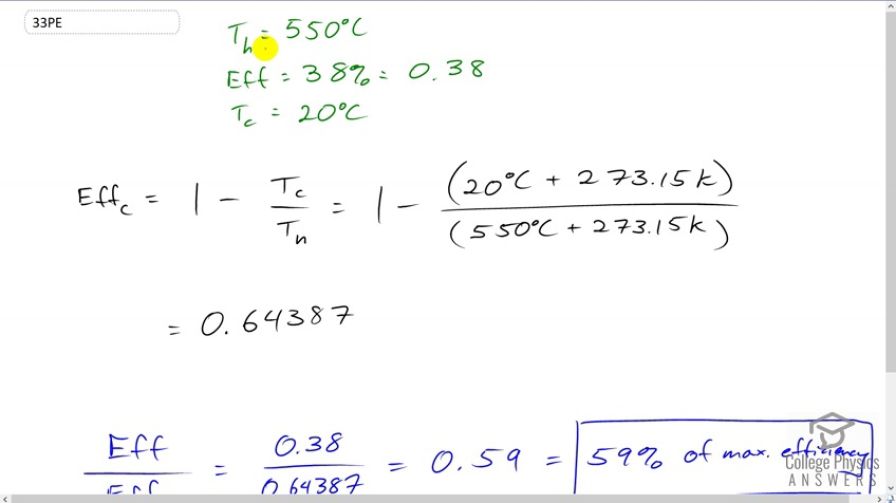 33PE
T_h = 550°C
Eff = 38% = 0.38
T_c = 20°C
Eff_c = 1 - T_c / T_h = 1 - (20°C + 273.15K) / (550°C + 273.15K)
= 0.64387
Eff / Eff = 0.38 / 0.64387 = 0.59 = 59% of max. efficiency
College Physics
ANSWERS